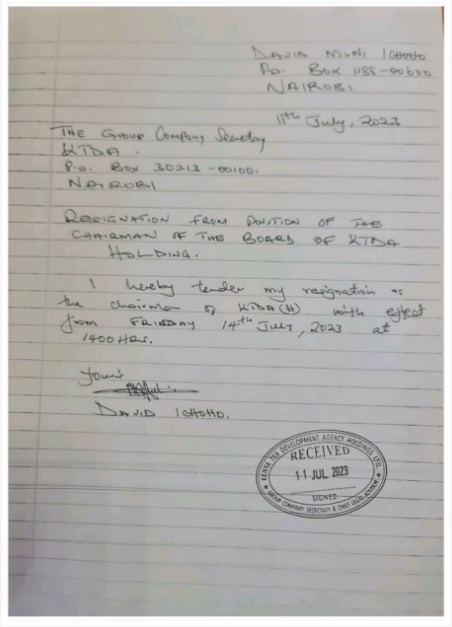 DAVID MUNI ICHOHO
P.O. BOX 1188-00600
NAIROBI
11th July, 2023
THE GROUP COMPANY Secretary
KTDA.
P.O. BOX 30213-00100.
NAIROBI
RESIGNATION FROM POSITION OF THE
CHAIRMAN OF THE BOARD OF KTDA
HOLDING.
I hereby tender my resignation as
the chairman of KTDA(H) with effect
from FRIDAY 14th July, 2023 at
1400HRS.
Yours
DAVID ICHOHO.
KENYA TEA DEVELOPMENT AGENCY HOLDINGS LTD.
RECEIVED
11 JUL 2023
SIGNED
GROUP COMPANY SECRETARY & CHIEF LEGAL ADVISOR